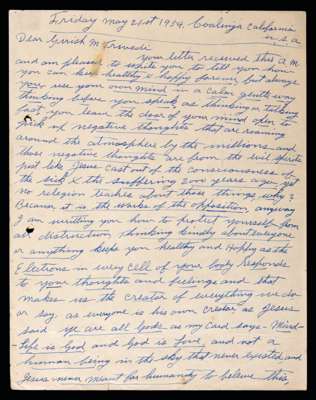 Friday May 21st 1954, Coalinga California
U.S.A
Dear Girish M Trivedi
Your letter received this A M
and am pleased to write you to tell you how
you can keep healthy & happy forever but always
use your own mind in a calm gentle way
thinking before you speak, as thinking or talking
fast, you leave the door of your mind open to
of negative thoughts that are roaming
around the atmosphere by the millions and
these negative thoughts are from the evil spirits
just like Jesus cast out of the consciousness of
the sick & the suffering 2000 years ago, yet
no religion teaches about these things why?
Because it is the works of the opposition, anyway
I am writing you how to protect yourself from
all distruction, thinking kindly about everyone
or anything keeps you healthy and Happy as the
Elections in every cell of your body responds
to your thoughts and feelings and that
makes us the creator of everything we do
or say, as everyone is his own creator as Jesus
said ye are all Gods as my Card says - Mind
-Life is God and God is Love, and not a
human being in the sky that never existed and
Jesus never meant for humanity to believe this,